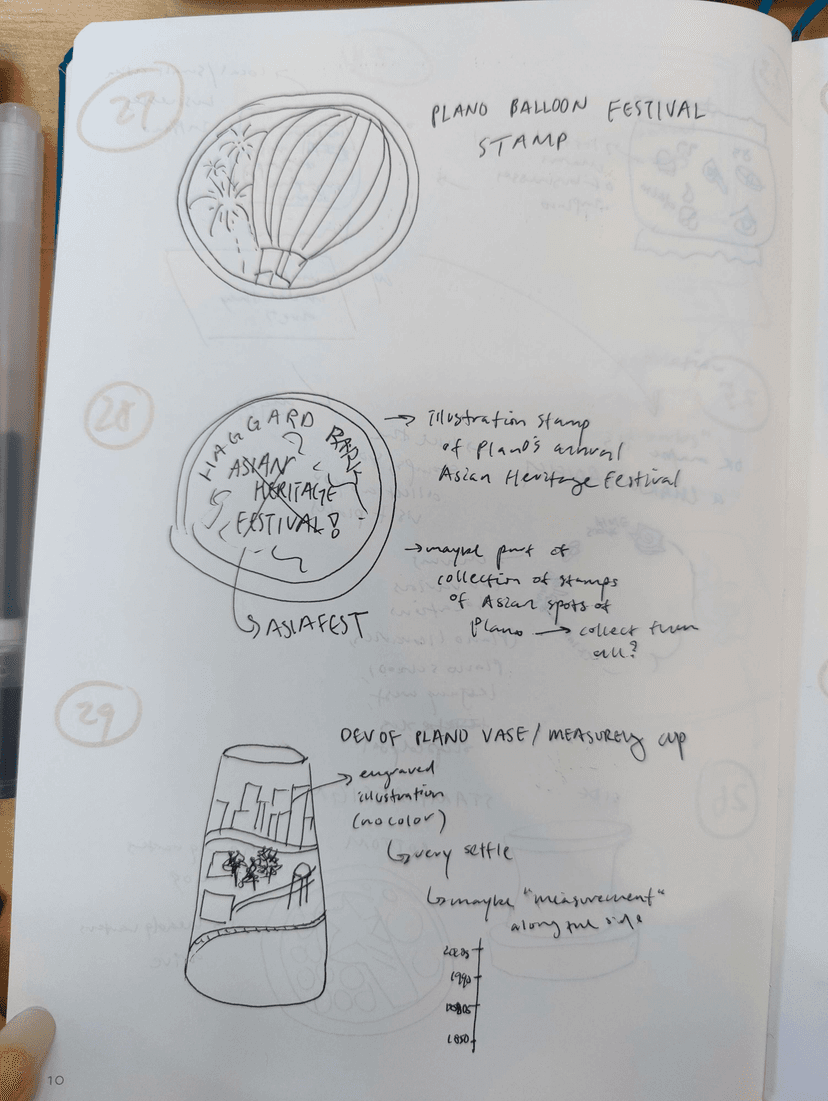 27
PLANO BALLOON FESTIVAL
STAMP
28
HAGGARD PARK
ASIAN
HERITAGE
FESTIVAL!
ASIAFEST
→ illustration stamp
of Plano's annual
Asian Heritage Festival
→ maybe part of
collection of stamps
of Asian spots of
Plano → collect them
all?
29
DEV OF PLANO VASE / MEASURING CUP
→ engraved
illustration
(no color)
very settle
maybe "measurement"
along the side
2000s
1990
1850
10